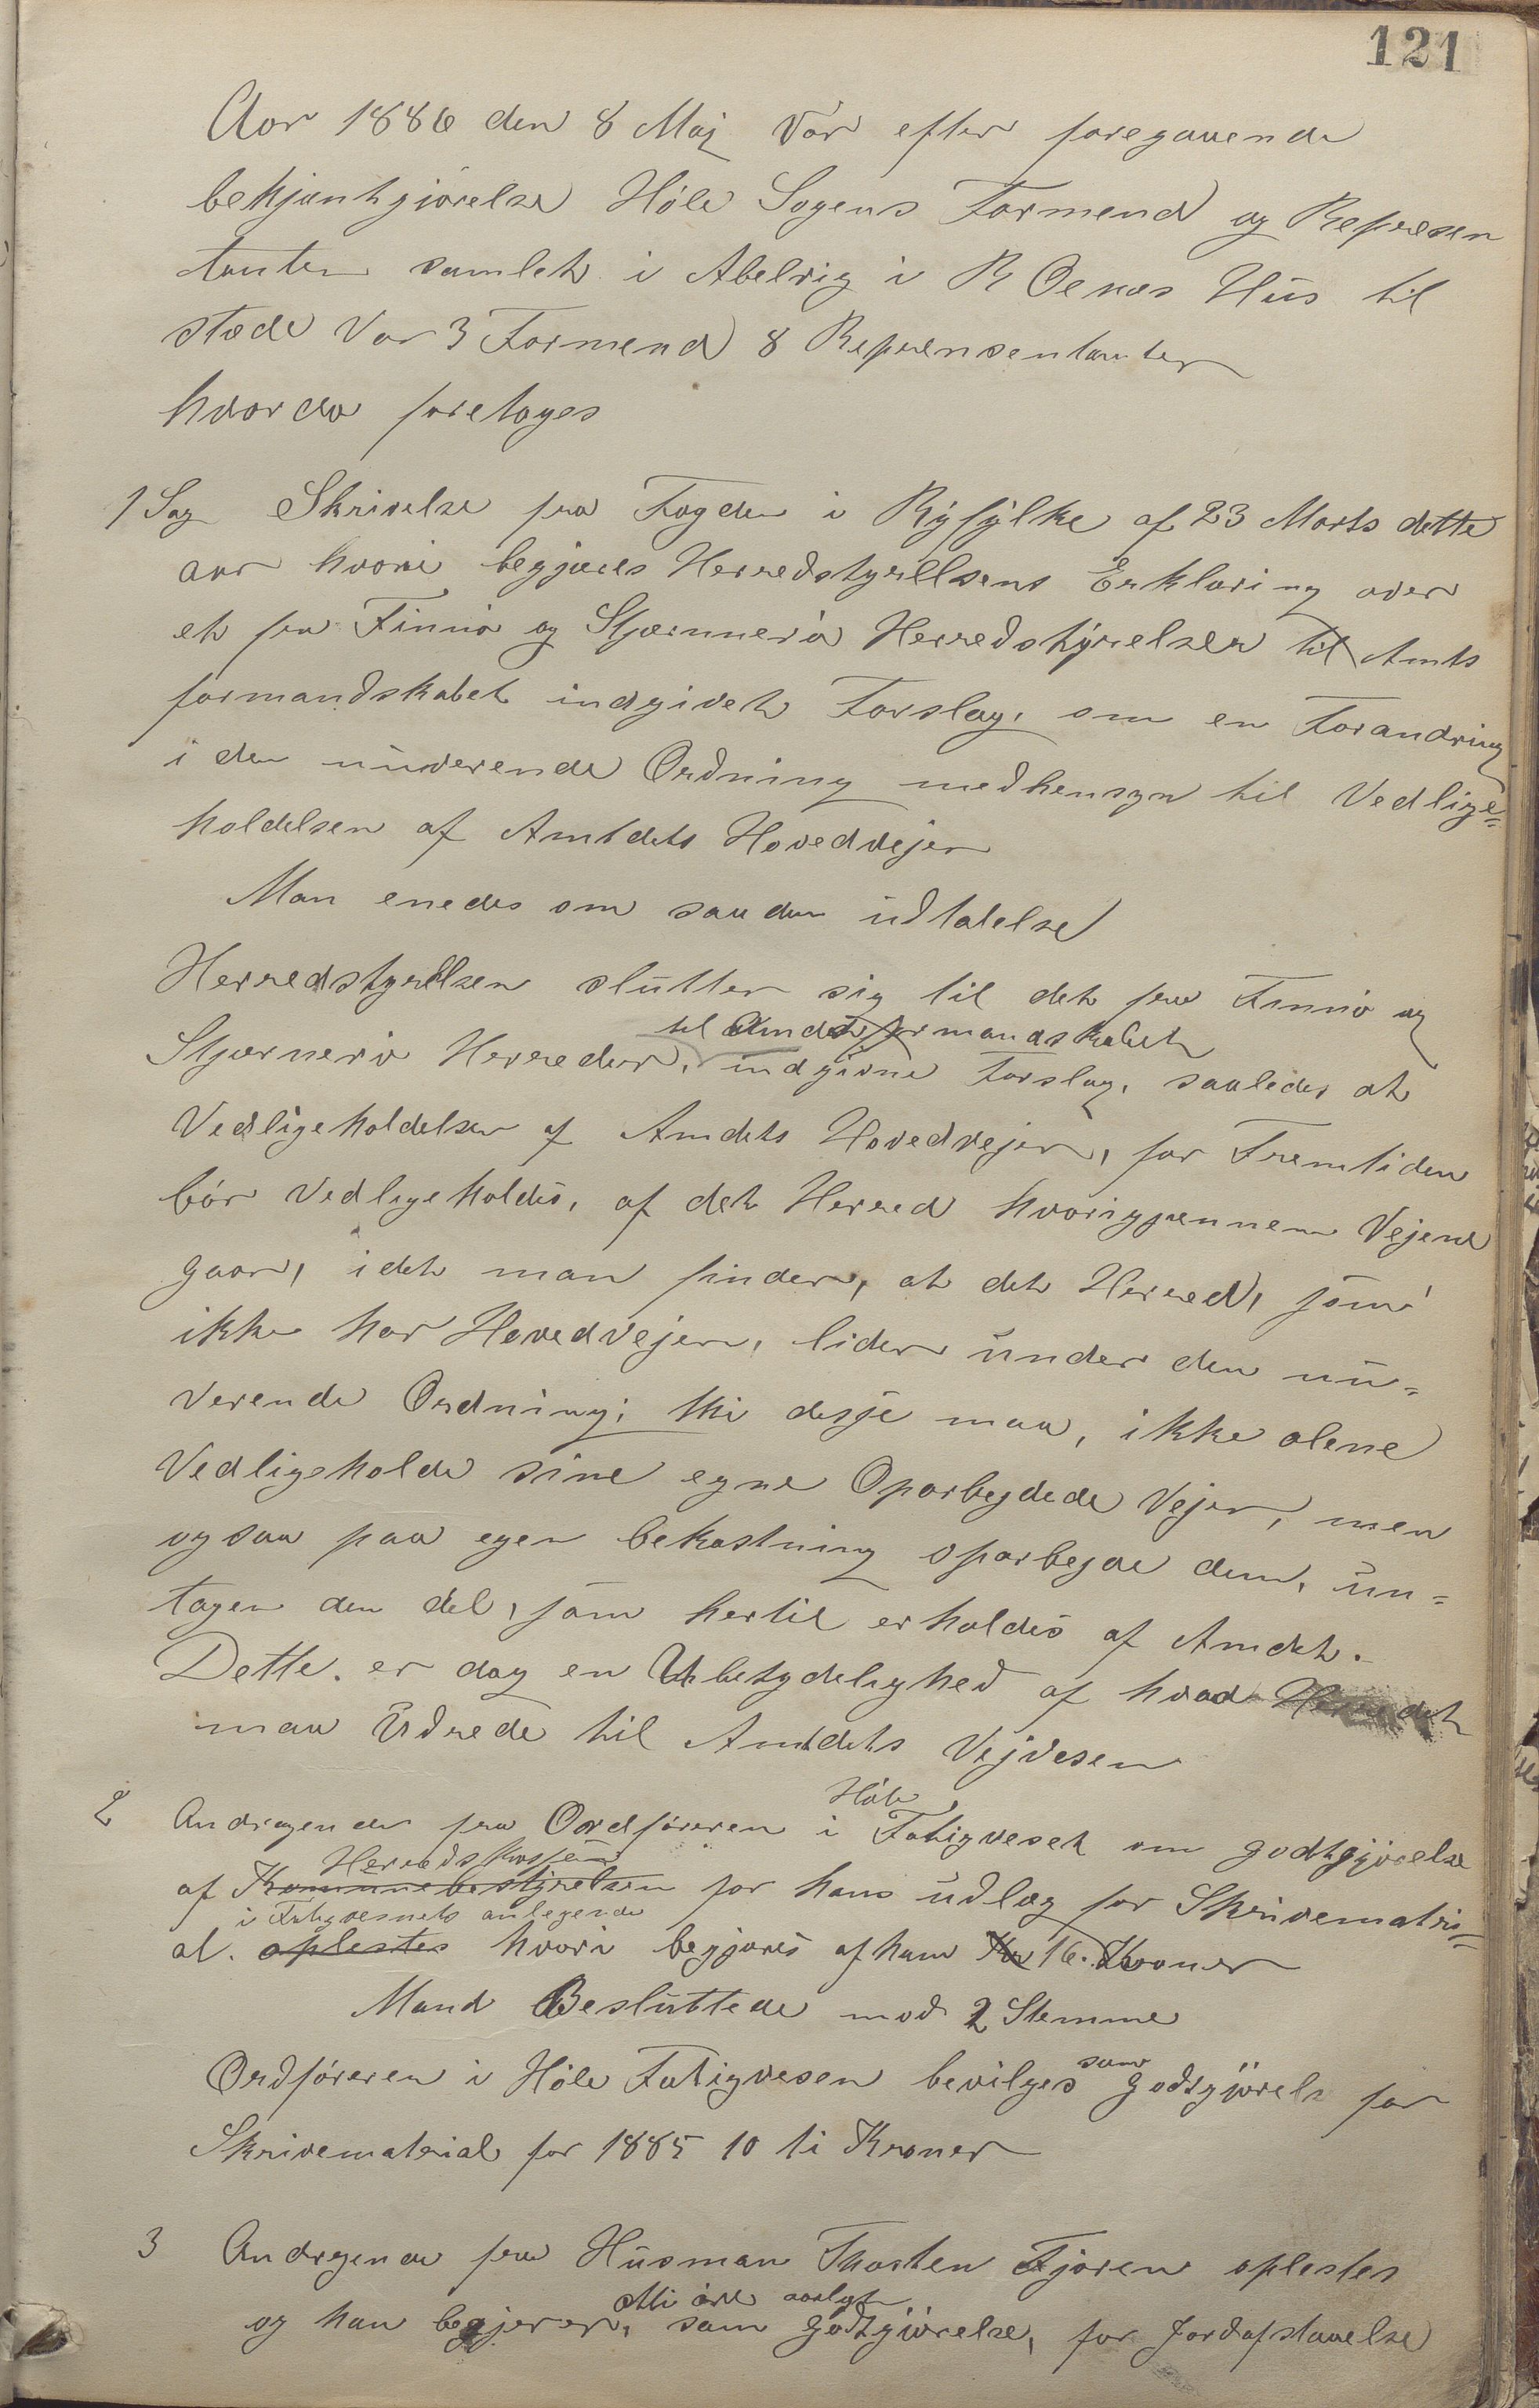 121
Aar 1886 den 8 Maj Var efter foregaaende
bekjæntgjørelse Høle Sogens Formend og Represen
tanter samlet i Abelvig i R Oenæs Hus til
stæde Var 3 Formend 8 Reprensentanter
hvorda foretages
1 Sag Skrivelse fra Fogden i Ryfylke af 23 Marts dette
aar hvori begjæres Herredstyrelsens Erklæring over
et fra Finnø og Stjærnerø Herredstyrelser til Amts
formandskabet indgivet Forslag, om en Forandring
i den nuværende Ordning medhensyn til Vedlige=
holdelsen af Amtdets Hovedvejer
Man enedes om saadan udtalelse
Herredstyrelsen slutter sig til det fra Finnø og
til Amdetsformandskabet
Stjærnerø Herreder, indgivne Forslag, saaledes at
Vedligeholdelsen af Amdets Hovedvejer, for Fremtiden
bør Vedligeholdes, af det Herred hvorigjænnem Vejene
gaar, idet man finder, at det Herred, som
ikke har Hovedvejer, lider under den nu-
verende Ordning; thi desse maa, ikke alene
Vedligeholde sine egne Oparbejdede Vejer, men
ogsaa paa egen bekostning oparbejde dem, un-
tagen den del, som hertil erholdes af Amdet.
Dette er dog en Ubetydelighed af hvad Herredet
maa Udrede til Amtdets Vejvesen
2 Andragende fra Ordføreren i Høle Fatigvesen om godtgjørelse
Herredskassen
af Kommunebestyrelsen for hans udlæg for Skrivematri=
i Fatigvesnets anlegende
al. oplestes hvori begjæres af ham Kr 16. Kroner
Mand Besluttede mod 2 Stemme
Ordføreren i Høle Fatigvesen bevilges som godtgjørelse for
Skrivematerial for 1885 10 ti Kroner
3 Andragende fra Husman Thosten Fjøren oplestes
otti øre aarlgt
og han begjerer, som godtgjørelse, for Jordafstaaelse